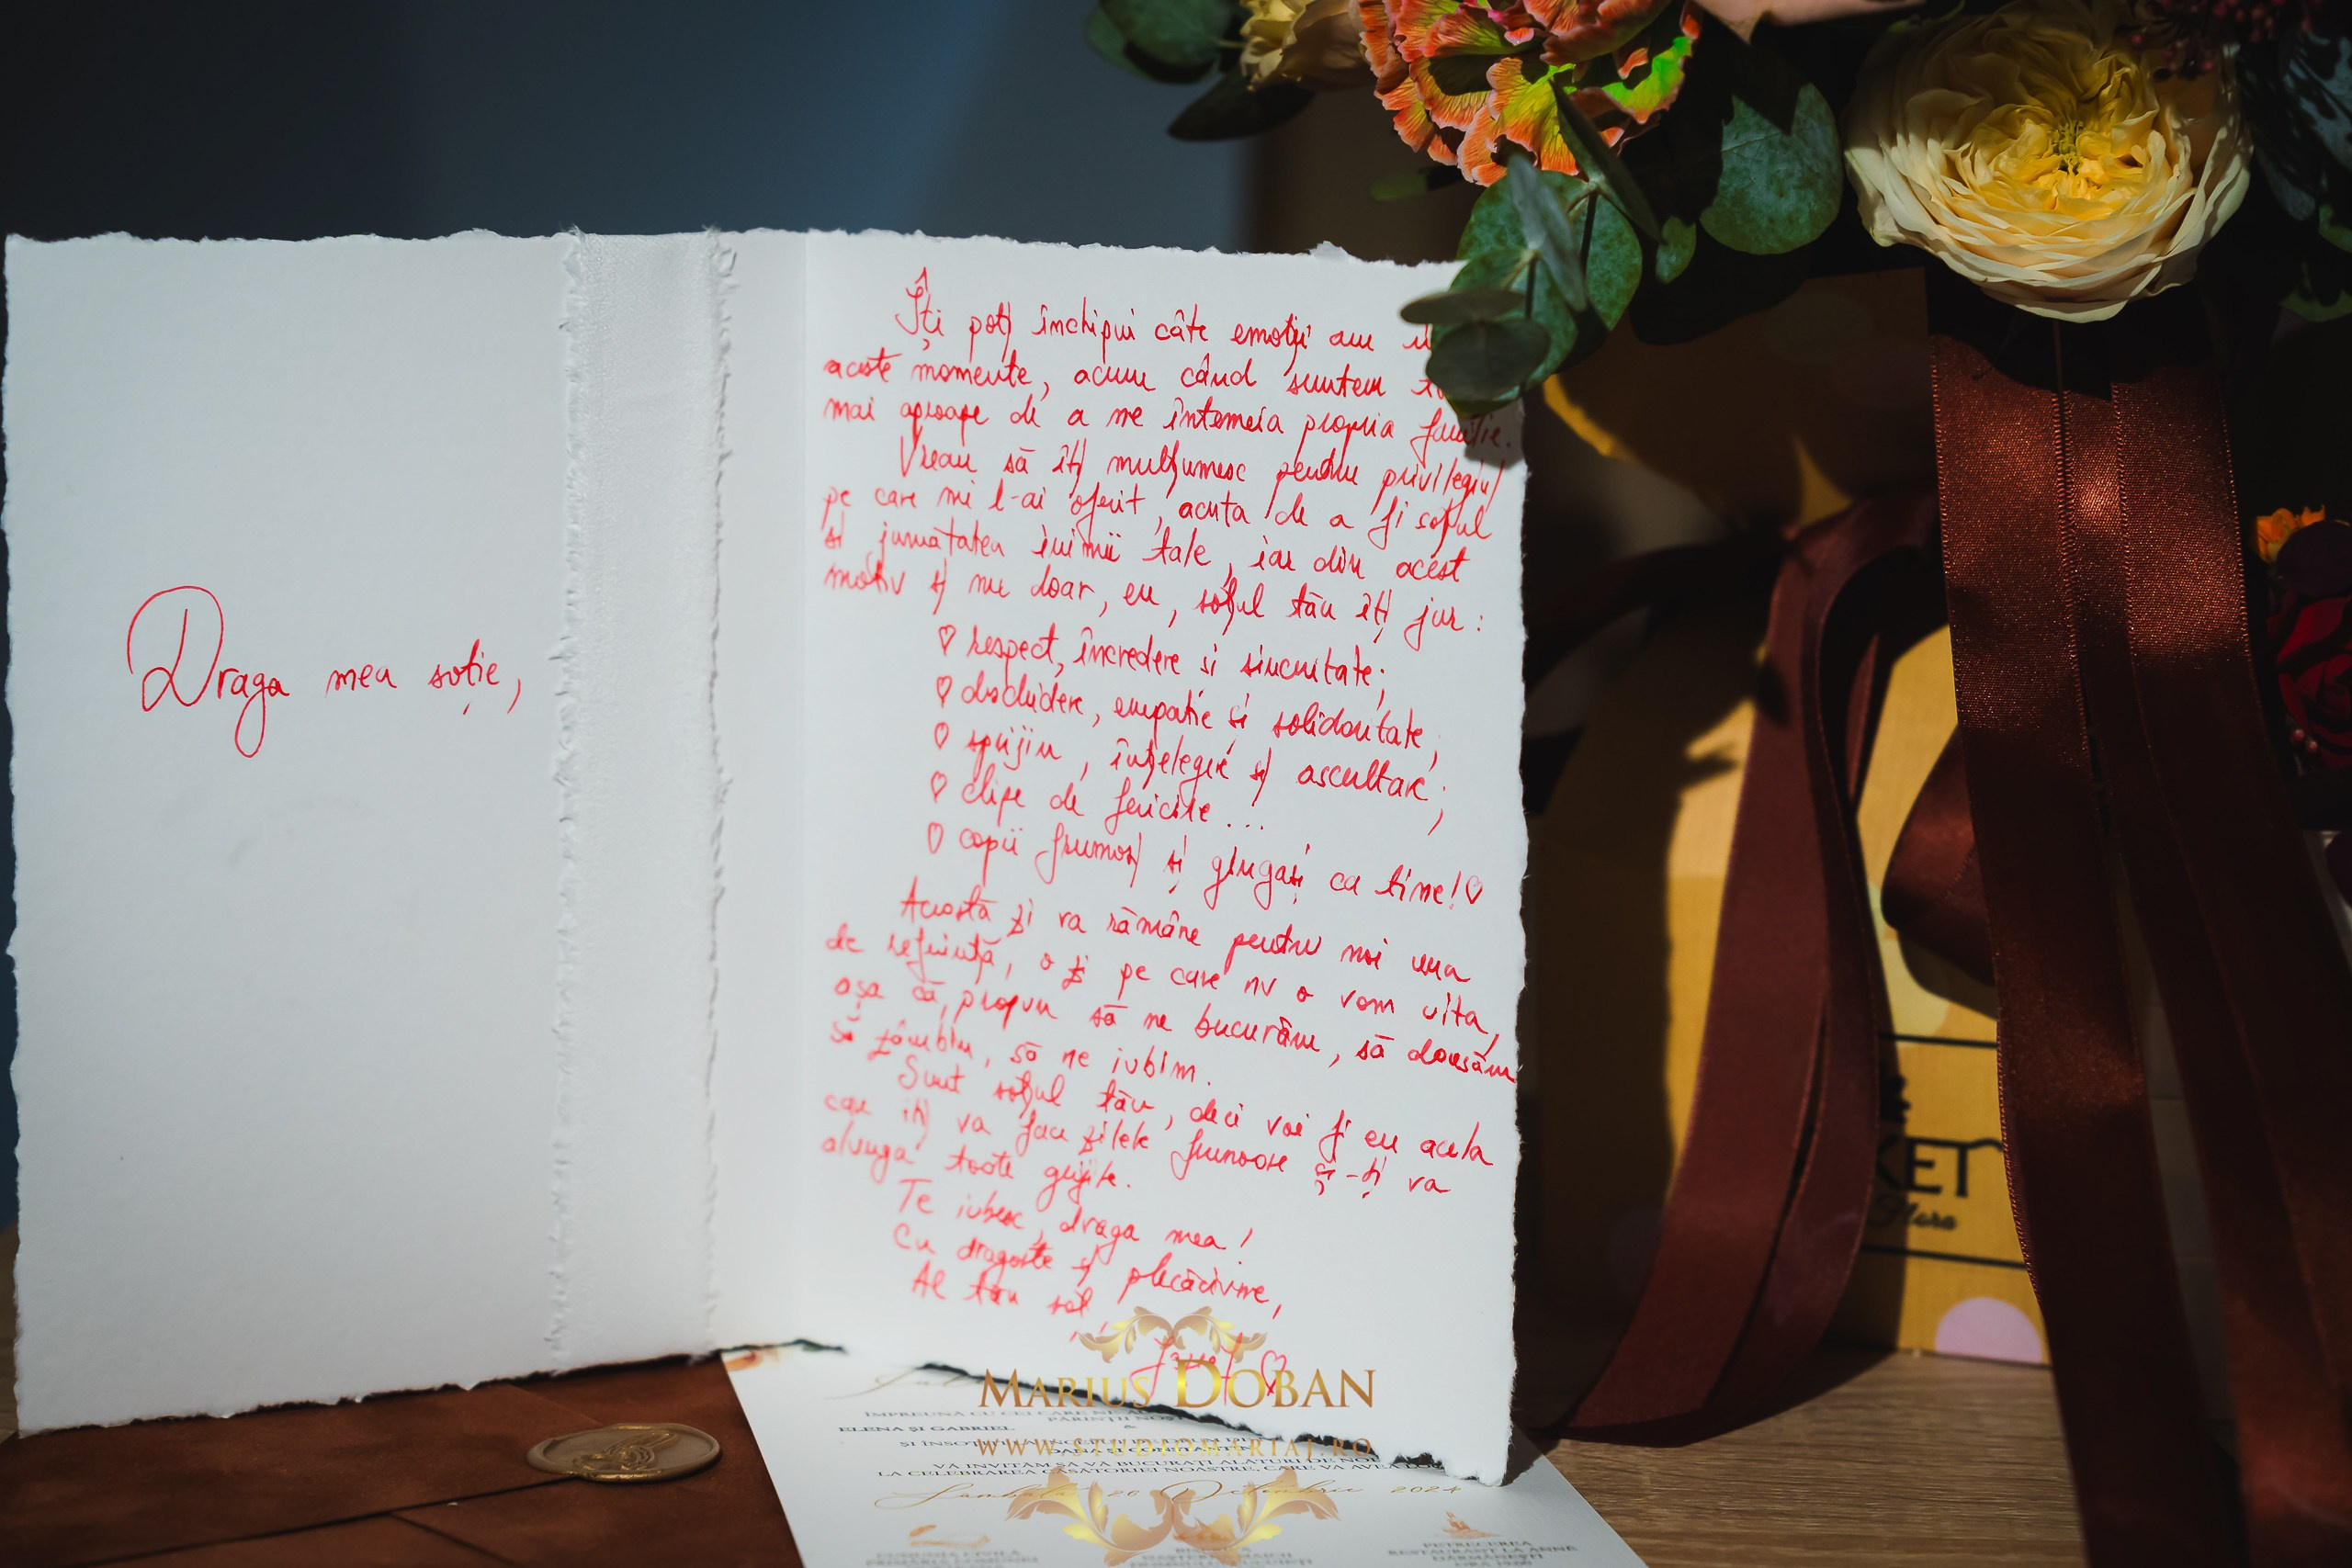 Draga mea soție,
Îți poți închipui câte emoții am
aceste momente, acum când suntem
mai aproape de a ne întemeia propria familie.
Vreau să îți mulțumesc pentru privilegiul
pe care mi l-ai oferit, acela de a fi soțul
și jumătatea inimii tale, iar din acest
motiv și nu doar, eu, soțul tău îți jur:
♡ respect, încredere si sinceritate;
♡ deschidere, empatie și solidaritate;
♡ sprijin, înțelegere și ascultare;
♡ clipe de fericire...
♡ copii frumoși și gingași ca tine!♡
Această zi va rămâne pentru noi una
de referință, o zi pe care nu o vom uita,
așa că, propun să ne bucurăm, să dansăm
să zâmbim, să ne iubim.
Sunt soțul tău, deci voi fi eu acela
care îți va face zilele frumoase și-ți va
alunga toate grijile.
Te iubesc, draga mea!
Cu dragoste și plecăciune,
Al tău soț
MARIUS DOBAN
WWW.STUDIOMARIAJ.RO
ÎMPREUNĂ CU CEI CARE NE
PĂRINȚII
ELENA ȘI GABRIEL &
VĂ INVITĂM SĂ VĂ BUCURAȚI ALĂTURI DE NOI
LA CELEBRAREA CĂSĂTORIEI NOASTRE, CARE VA AVEA
Sâmbătă 26 Octombrie 2024
PETRECEREA
RESTAURANT LA ANNE
KET
Flora